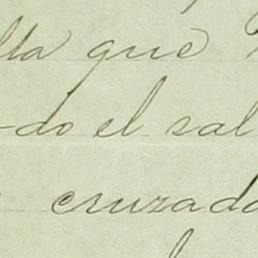 lla que
-do el sal
cruzado